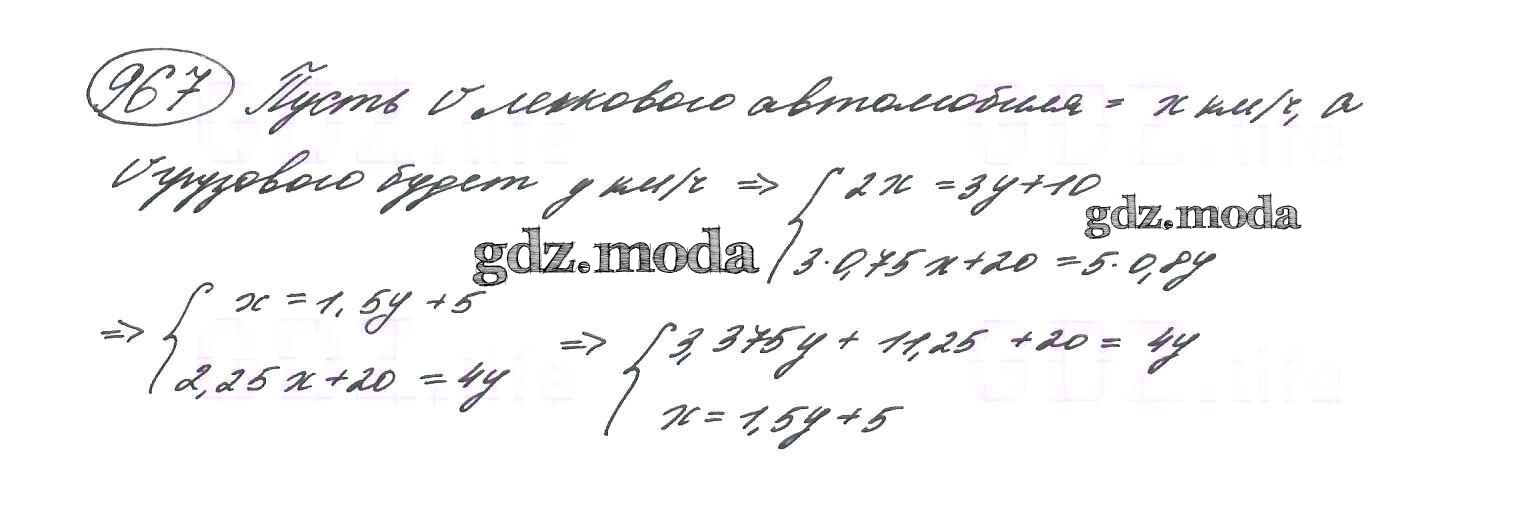 967 Пусть v легкового автомобиля = x км/ч, а
v грузового будет y км/ч => { 2x = 3y+10
gdz.moda
gdz.moda
3·0,75x+20 = 5·0,8y
=> { x = 1,5y +5
2,25x+20 = 4y
=> { 3,375y + 11,25 +20 = 4y
x = 1,5y+5